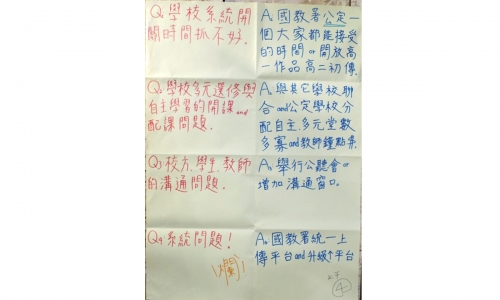 Q1 學校系統開
關時間抓不好.
A1 國教署公定一
個大家都能接受
的時間 or 開放高
一作品高二初傳.
Q2 學校多元選修與
自主學習的開課 and
配課問題.
A2 與其它學校聯
合 and 公定學校分
配自主、多元堂數
多寡 and 教師鐘點費.
Q3 校方、學生、教師
的溝通問題.
A3 舉行公聽會 or
增加溝通窗口.
Q4 系統問題!
爛!
A4 國教署統一上
傳平台 and 升級↑平台
4